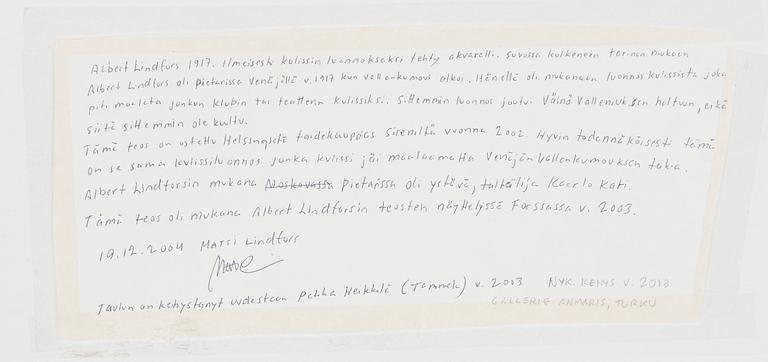 Albert Lindfors 1917. Ilmeisesti kulissin luonnokseksi tehty akvarelli. Suvussa kulkeneen tarinan mukaan
Albert Lindfors oli Pietarissa Venäjällä v. 1917 kun vallankumous alkoi. Hänellä oli mukanaan luonnos kulissista joka
piti maalata jonkun klubin tai teatterin kulissiksi. Sittemmin luonnos joutui Väinö Valleniuksen haltuun, eikä
siitä sittemmin ole kuultu.
Tämä teos on ostettu Helsingistä taidekauppias Sireniltä vuonna 2002. Hyvin todennäköisesti tämä
on se sama kulissiluonnos jonka kulissi jäi maalaamatta Venäjän vallankumouksen takia.
Albert Lindforsin mukana Moskovassa Pietarissa oli ystävä, taiteilija Kaarlo Kati.
Tämä teos oli mukana Albert Lindforsin teosten näyttelyssä Forssassa v. 2003.
19.12.2004 Matti Lindfors
Taulun on kehystänyt uudestaan Pekka Heikkilä (Tammela) v. 2003 NYK. KEHYS V. 2010
GALLERIE ANMARIS, TURKU